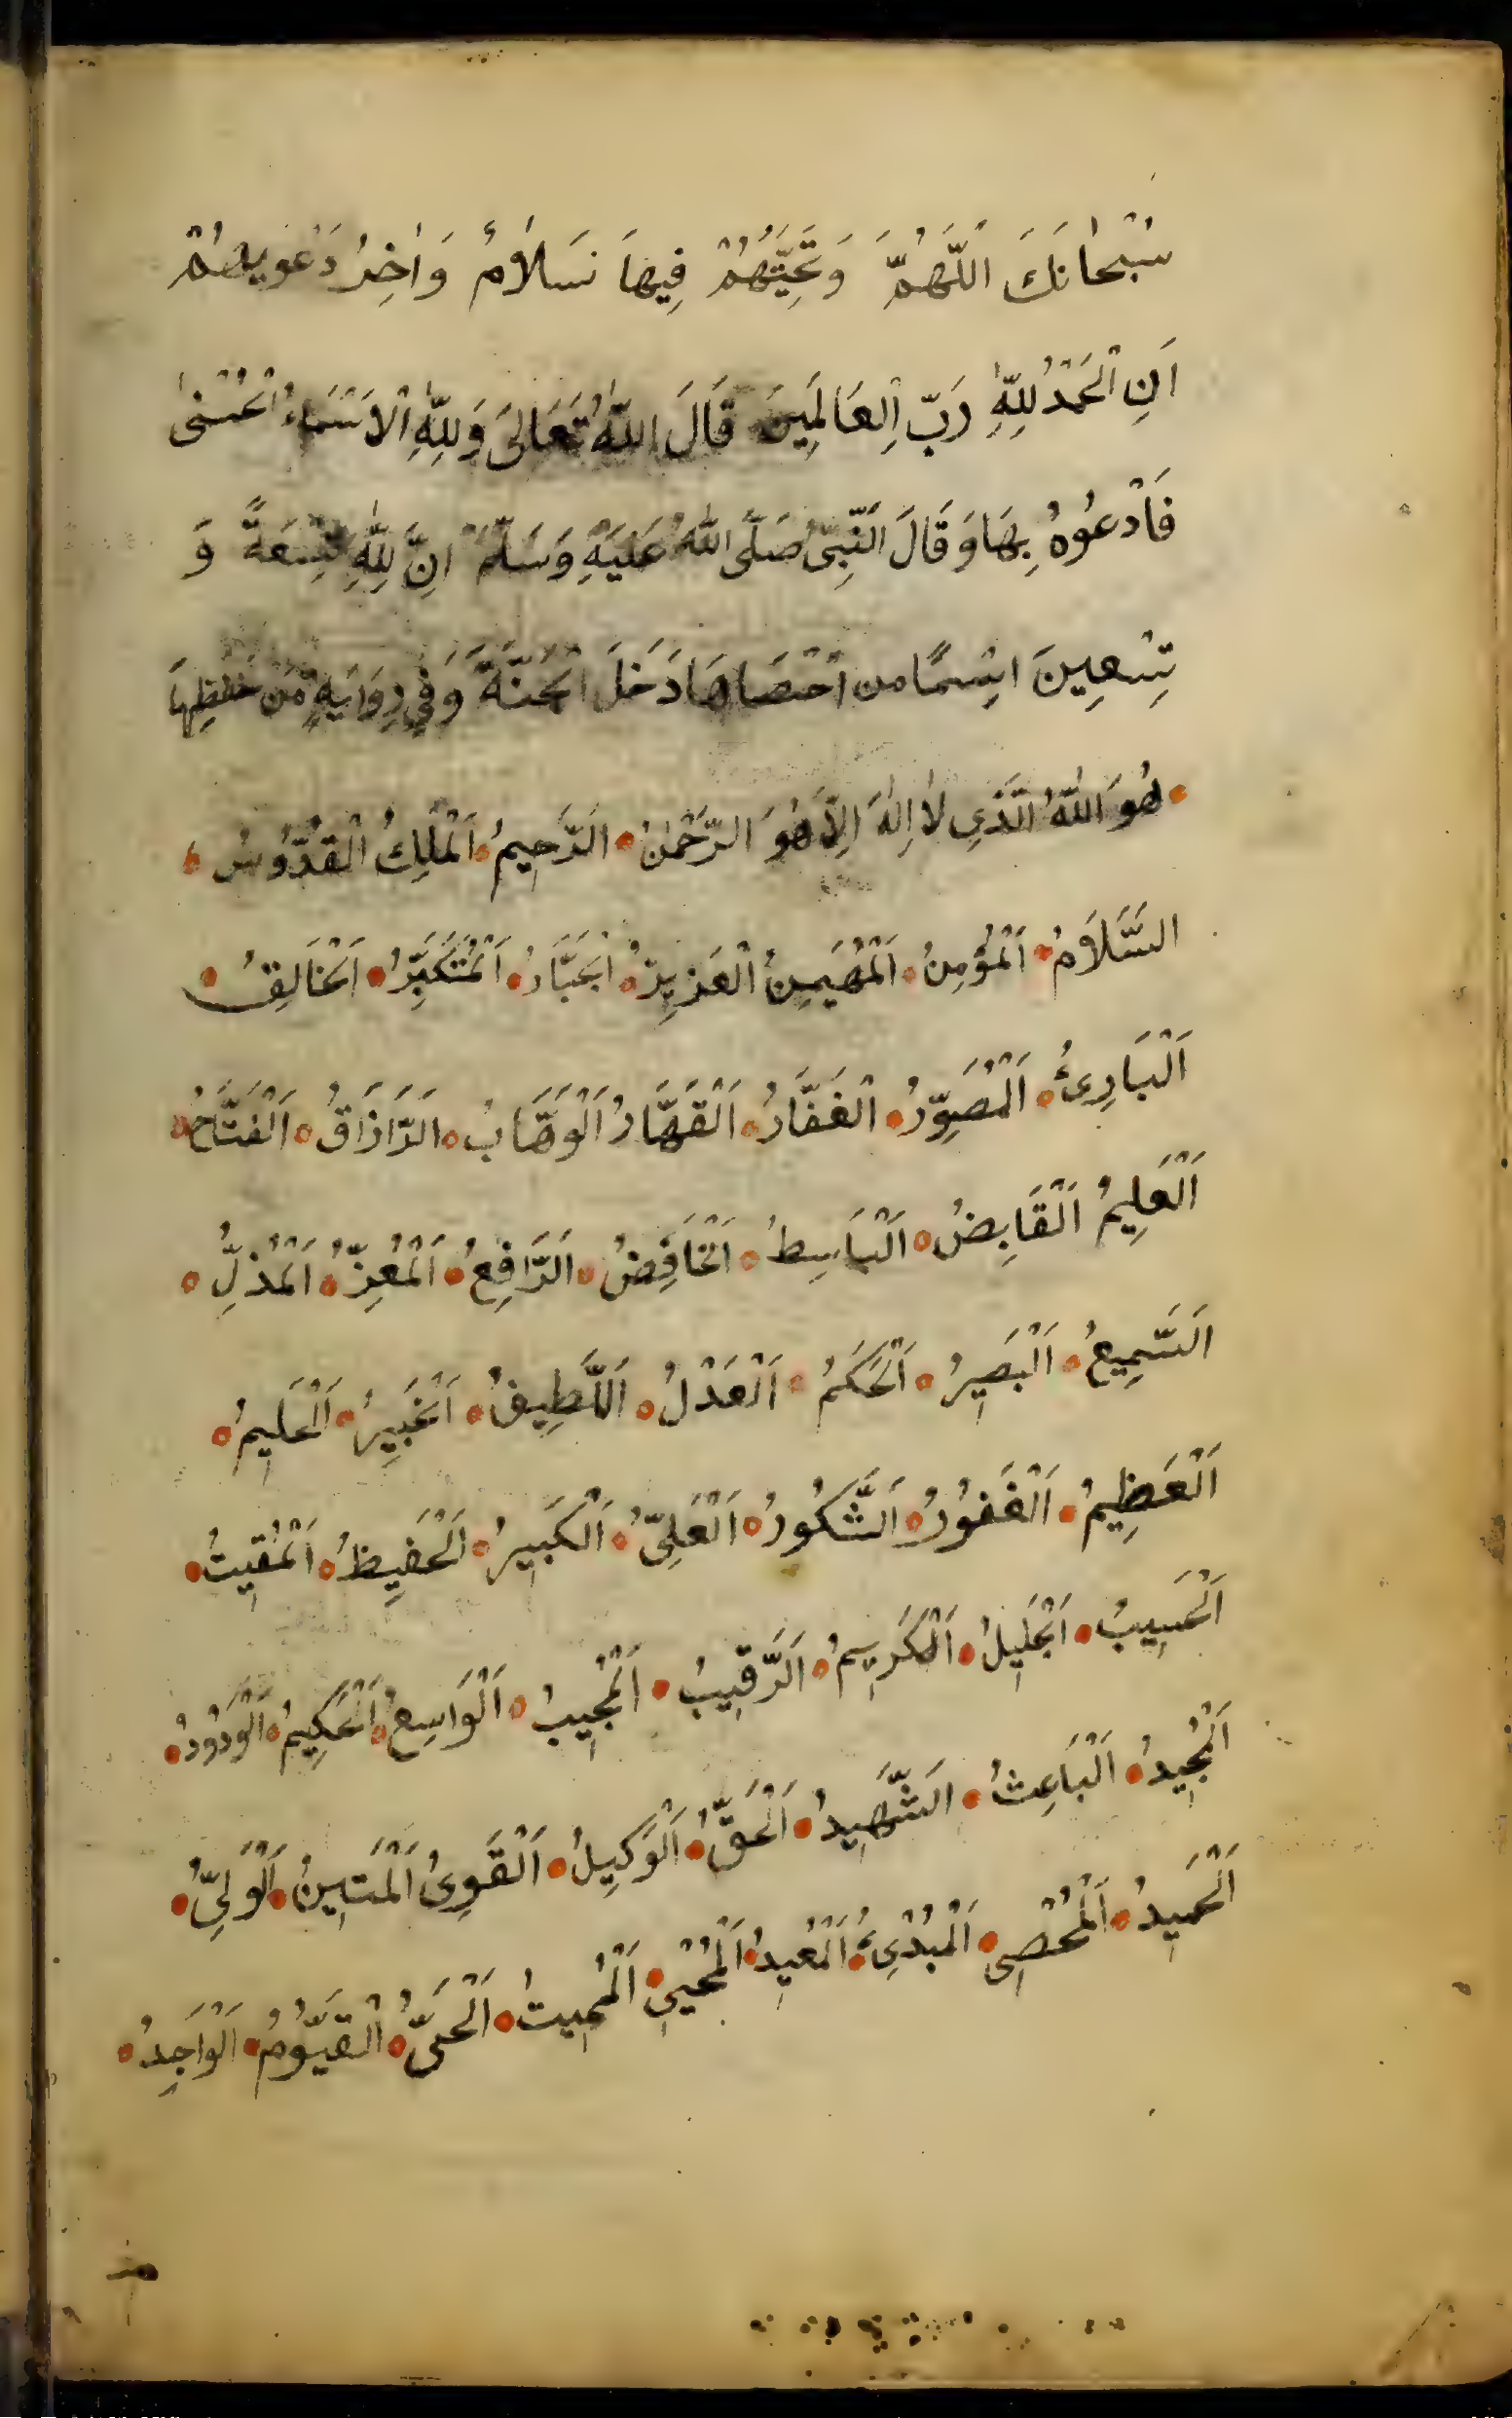 سُبْحَانَكَ اللَّهُمَّ وَتَحِيَّتُهُمْ فِيهَا سَلَامٌ وَاٰخِرُ دَعْوٰيهُمْ
اَنِ الْحَمْدُ لِلّٰهِ رَبِّ الْعَالَمِينَ قَالَ اللّٰهُ تَعَالَى وَلِلّٰهِ الْاَسْمَاءُ الْحُسْنٰى
فَادْعُوهُ بِهَا وَقَالَ النَّبِىُّ صَلَّى اللّٰهُ عَلَيْهِ وَسَلَّمَ اِنَّ لِلّٰهِ تِسْعَةً وَ
تِسْعِينَ اِسْمًا من اَحْصَاهَا دَخَلَ الْجَنَّةَ وَفِي رِوَايَةٍ مَن حَفِظَهَا
هُوَ اللّٰهُ الَّذِي لَا اِلٰهَ اِلَّا هُوَ الرَّحْمٰنُ • اَلرَّحِيمُ • اَلْمَلِكُ الْقُدُّوسُ •
السَّلَامُ • اَلْمُؤْمِنُ • اَلْمُهَيْمِنُ الْعَزِيزُ • اَلْجَبَّارُ • اَلْمُتَكَبِّرُ • اَلْخَالِقُ •
اَلْبَارِئُ • اَلْمُصَوِّرُ • الْغَفَّارُ • اَلْقَهَّارُ اَلْوَهَّابُ • الرَّازَاقُ • اَلْفَتَّاحُ •
اَلْعَلِيمُ اَلْقَابِضُ • اَلْبَاسِطُ • اَلْخَافِضُ • اَلرَّافِعُ • اَلْمُعِزُّ • اَلْمُذِلُّ •
اَلسَّمِيعُ • اَلْبَصِيرُ • اَلْحَكَمُ • اَلْعَدْلُ • اَللَّطِيفُ • اَلْخَبِيرُ • اَلْحَلِيمُ •
اَلْعَظِيمُ • اَلْغَفُورُ • اَلشَّكُورُ • اَلْعَلِىُّ • اَلْكَبِيرُ • اَلْحَفِيظُ • اَلْمُقِيتُ •
اَلْحَسِيبُ • اَلْجَلِيلُ • اَلْكَرِيمُ • اَلرَّقِيبُ • اَلْمُجِيبُ • اَلْوَاسِعُ • اَلْحَكِيمُ • اَلْوَدُودُ •
اَلْمَجِيدُ • اَلْبَاعِثُ • اَلشَّهِيدُ • اَلْحَقُّ • اَلْوَكِيلُ • اَلْقَوِىُ اَلْمَتِينُ • اَلْوَلِىُّ •
اَلْحَمِيدُ • اَلْمُحْصِى • اَلْمُبْدِئُ • اَلْمُعِيدُ • اَلْمُحْيِى • اَلْمُمِيتُ • اَلْحَىُّ • اَلْقَيُّومُ • اَلْوَاجِدُ •